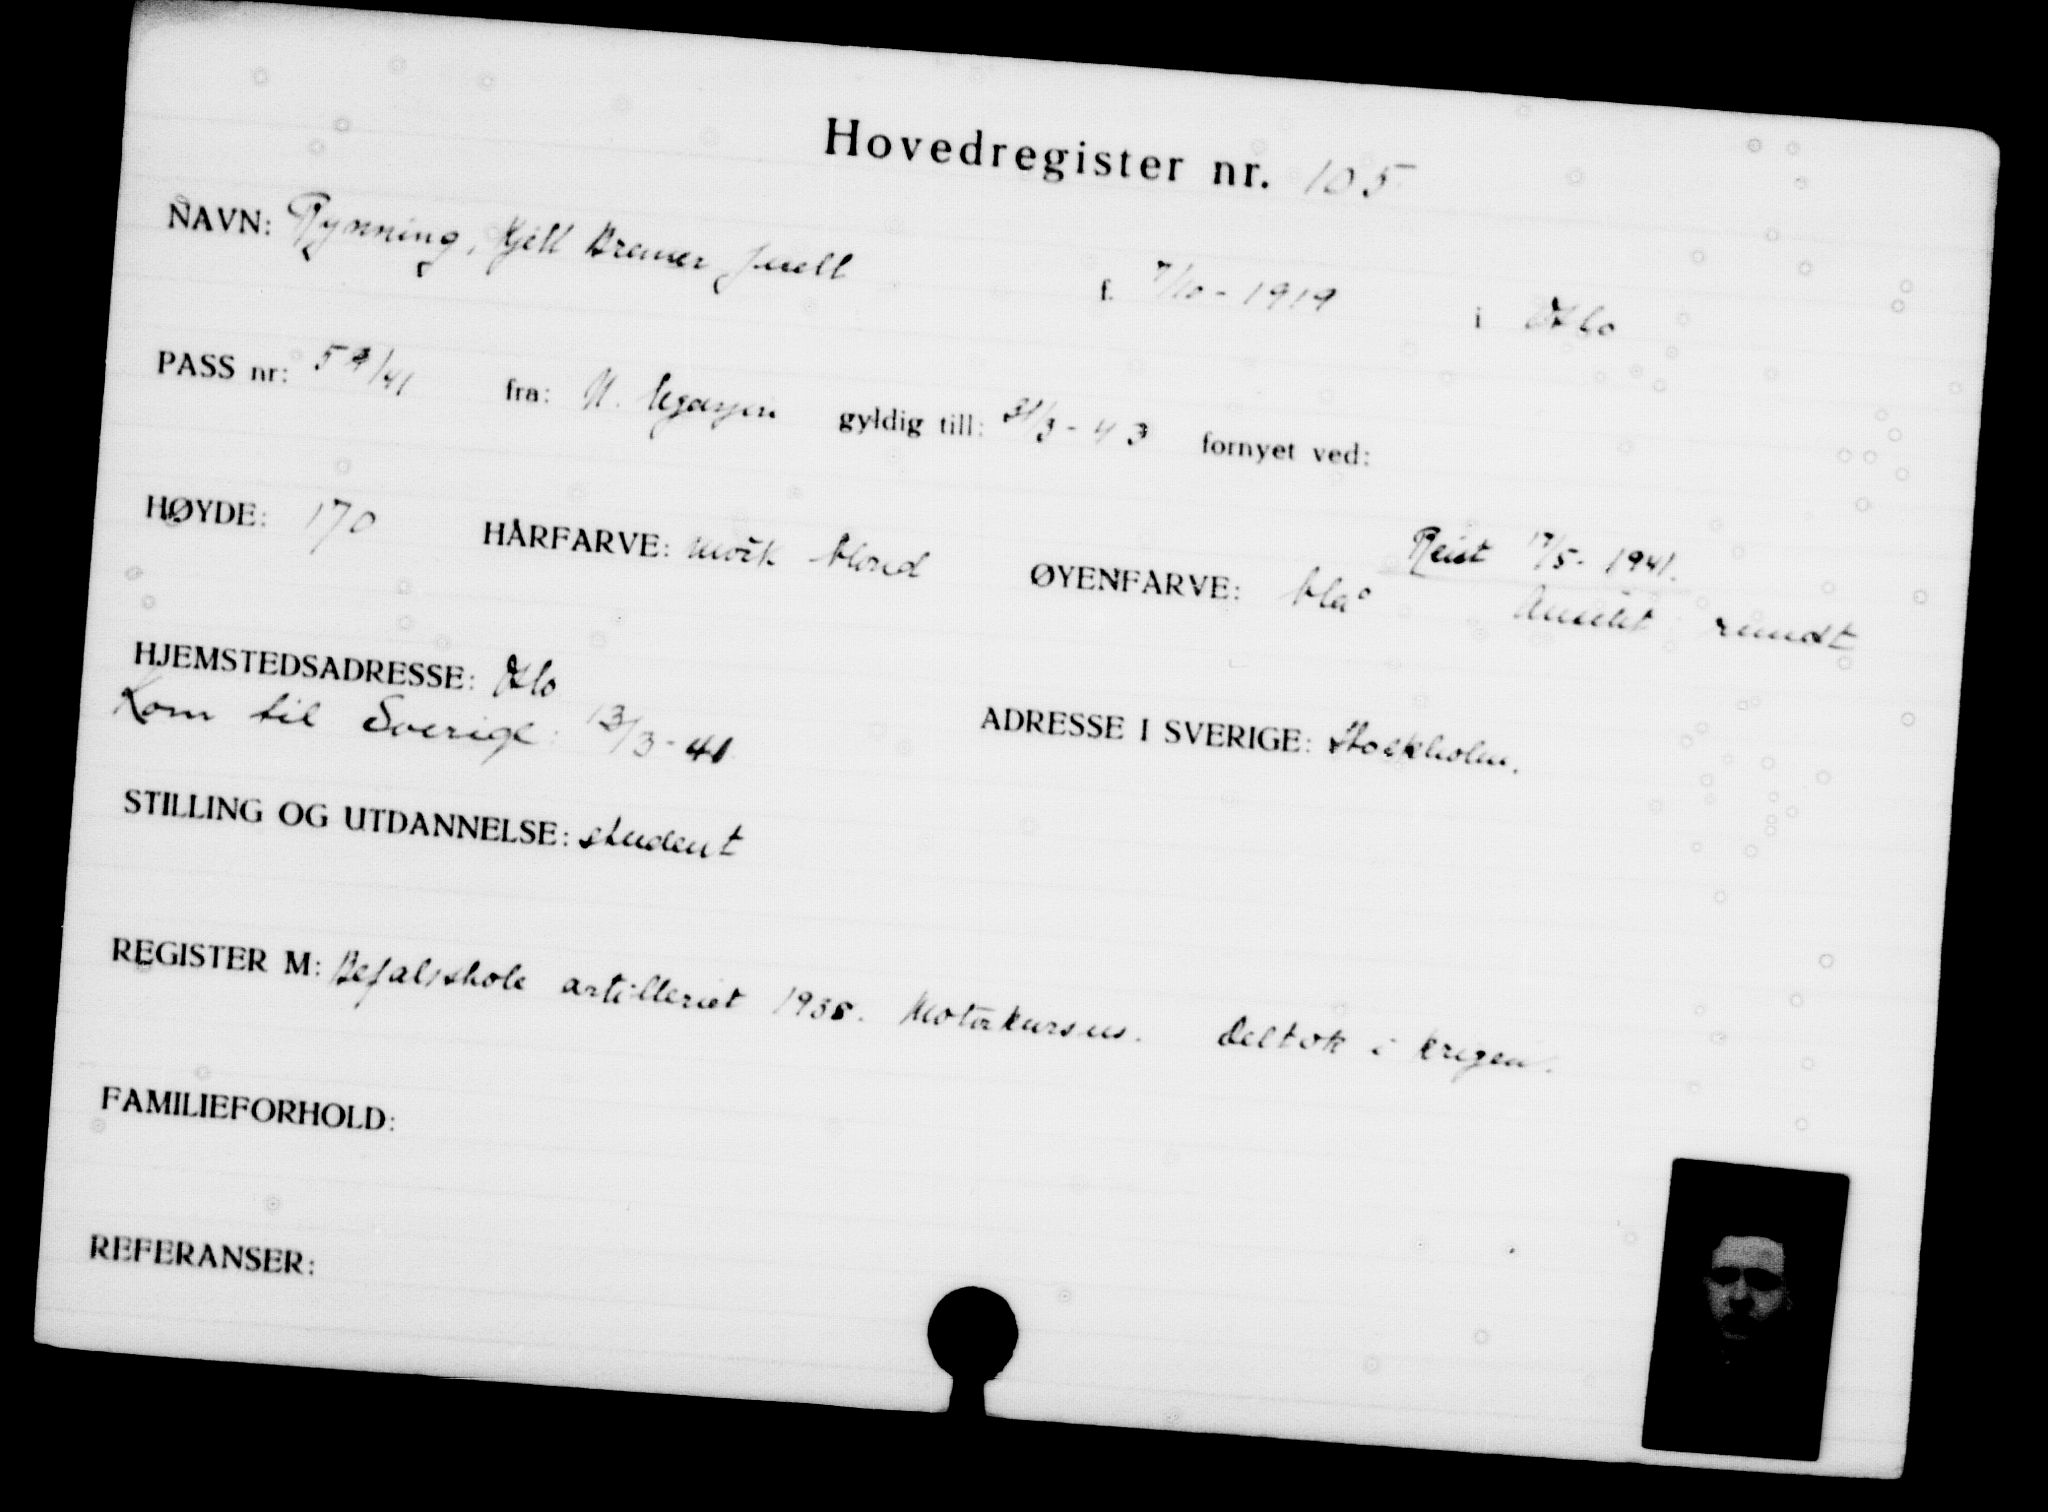 Hovedregister nr. 105
NAVN: Rynning, Kjell Bremer Juell f. 7/10 - 1919 i Oslo
PASS nr: 59/41 fra: N. legasjon gyldig till: 31/3 - 43 fornyet ved:
Reist 17/5 - 1941.
HØYDE: 170 HÅRFARVE: mørk blond ØYENFARVE: blå Ansikt rundt
HJEMSTEDSADRESSE: Oslo ADRESSE I SVERIGE: Stockholm.
Kom til Sverige: 13/3 - 41
STILLING OG UTDANNELSE: student
REGISTER M: Befalsskole artilleriet 1938. Motorkursus. Deltok i krigen.
FAMILIEFORHOLD:
REFERANSER: